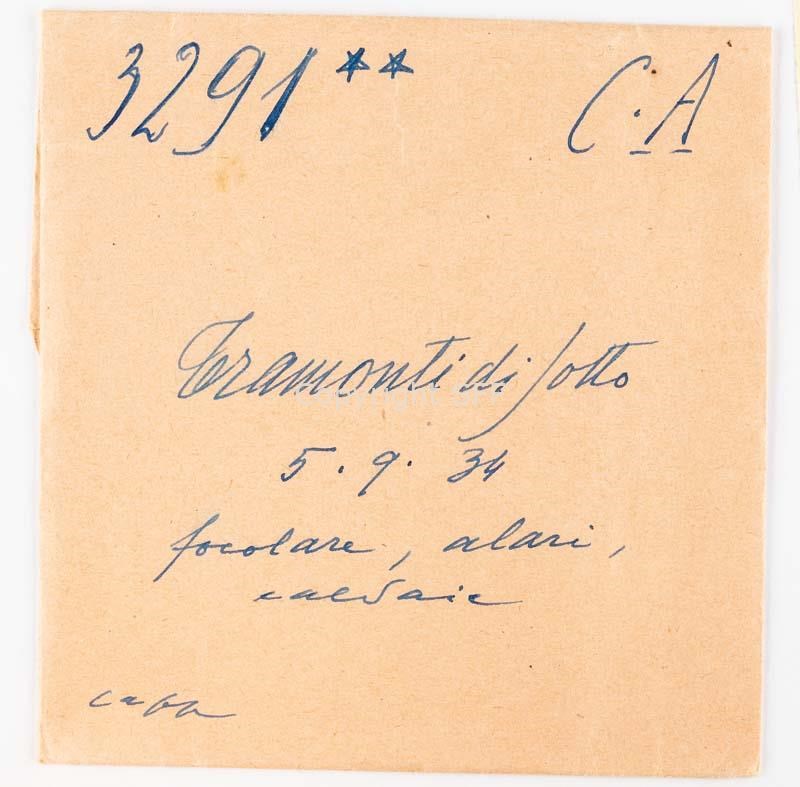 3291** C.A
Tramonti di Sotto
5.9.34
focolare, alari,
caldaie